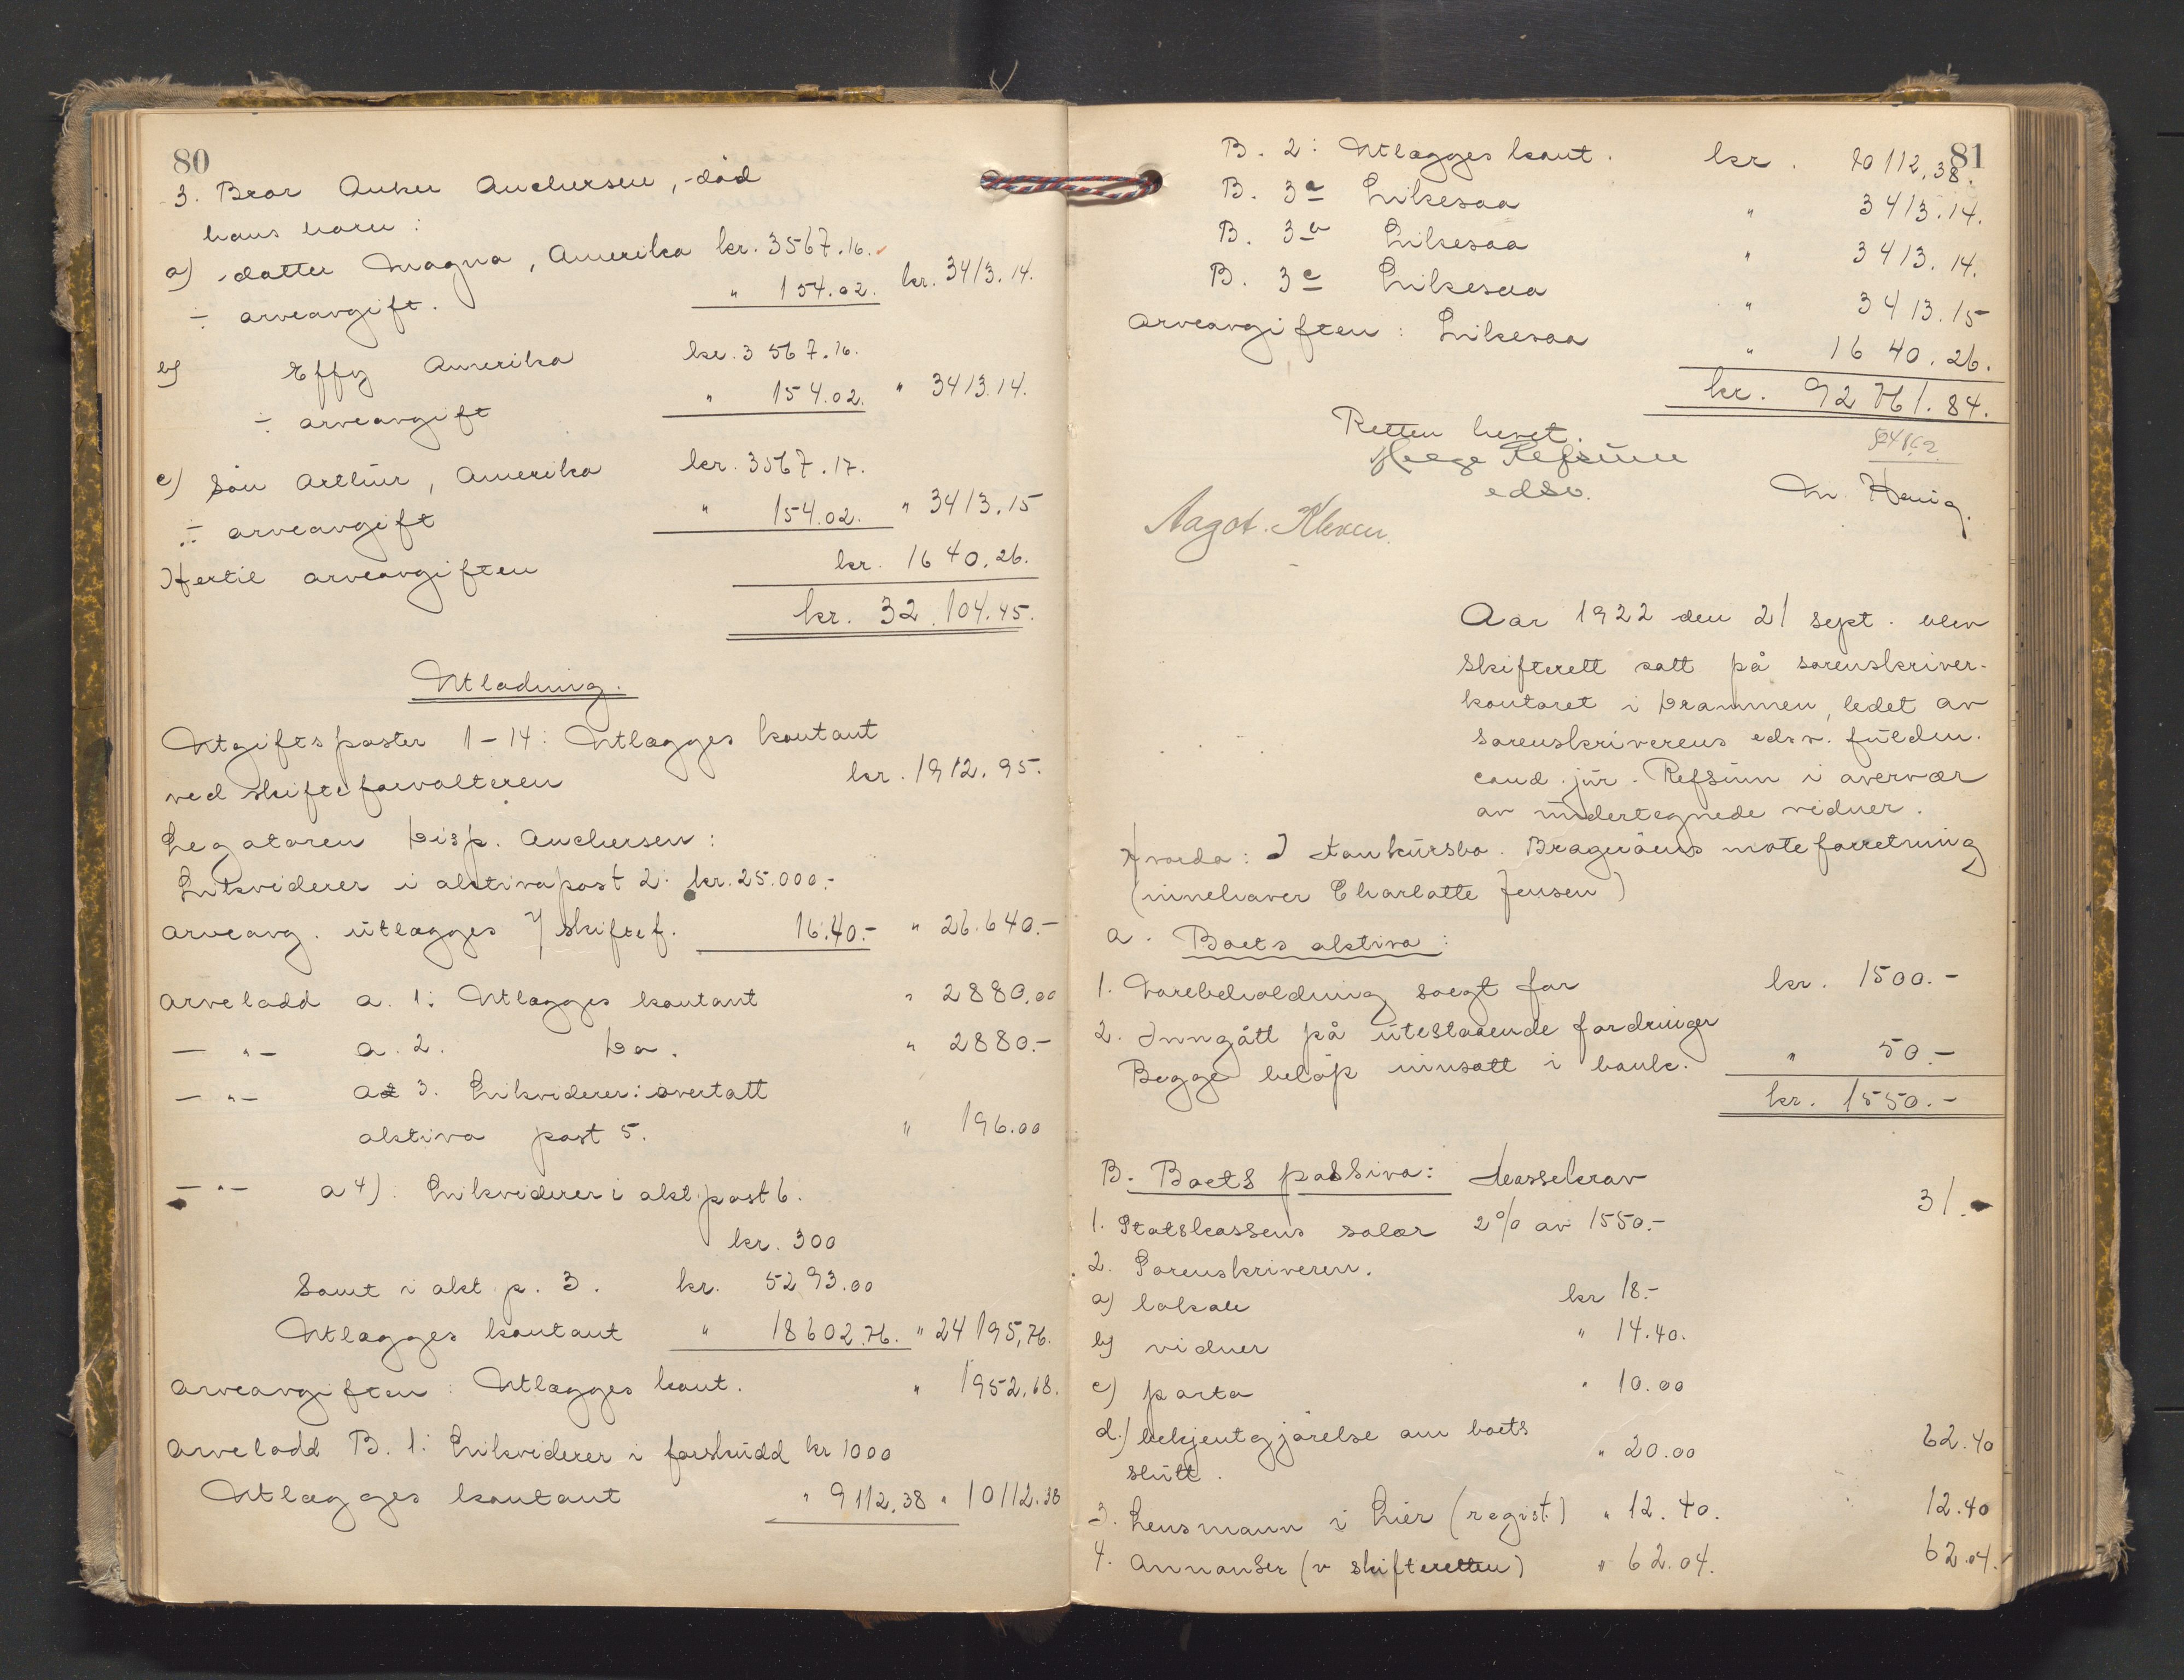 80
3. Bror Anker Anchersen, død
hans barn:
a) datter Magna, Amerika kr. 3567.16.
÷ arveavgift. " 154.02. kr. 3413.14.
b) Effy Amerika kr. 3567.16.
÷ arveavgift " 154.02. " 3413.14.
c) Søn Arthur, Amerika kr. 3567.17.
÷ arveavgift " 154.02. " 3413.15
Hertil arveavgiften kr. 1640.26.
kr. 32.104.45.
Utlodning.
Utgiftsposter 1-14: Utlægges kontant
ved skifteforvalteren kr. 1912.95.
Legatoren Disp. Anchersen:
Likviderer i aktivapost 2: kr. 25.000.-
arveavg. utlægges v/ skiftef. 16.40.- " 26.640.-
Arvelodd a. 1: Utlægges kontant " 2880.00
— " — a. 2. Do. " 2880.-
— " — a 3. Likviderer: overtatt
aktiva post 5. " 196.00
— " — a 4). Likviderer i akt. post 6.
kr. 300
Samt i akt. p. 3. kr. 5293.00
Utlægges kontant " 18602.76. " 24195,76.
Arveavgiften: Utlægges kont. " 1952.68.
Arvelodd B. 1: Likviderer i forskudd kr 1000
Utlægges kontant " 9112.38 " 10112.38
81
B. 2: Utlægges kont. kr. 10112,38.
B. 3a Likesaa " 3413.14.
B. 3b Likesaa " 3413.14.
B. 3c Likesaa " 3413.15
Arveavgiften: Likesaa " 1640.26.
kr. 92761.84.
Retten hevet.
Helge Refsum
edsv.
Aagot Kleven.
Aar 1922 den 21 sept. blev
skifterett satt på sorenskriver-
kontoret i Drammen, ledet av
sorenskriverens edsv. fuldm.
cand. jur. Refsum i overvær
av undertegnede vidner.
Hvorda: I konkursbo. Bragerøens moteforretning
(innehaver Charlotte Jensen)
a. Boets aktiva:
1. Varebeholdning solgt for kr. 1500.-
2. Inngått på utestaaende fordringer
Begge beløp innsatt i bank. " 50.-
kr. 1550.-
B. Boets passiva: Massekrav
1. Statskassens salær 2% av 1550.- 31.-
2. Sorenskriveren.
a) lokale kr 18.-
b) vidner " 14.40.
c) porto " 10.00
d.) bekjentgjørelse om boets
slutt. " 20.00 62.40
3. Lensmann i Lier (regist.) " 12.40. 12.40
4. Annonser (v skifteretten) " 62.04. 62.04.